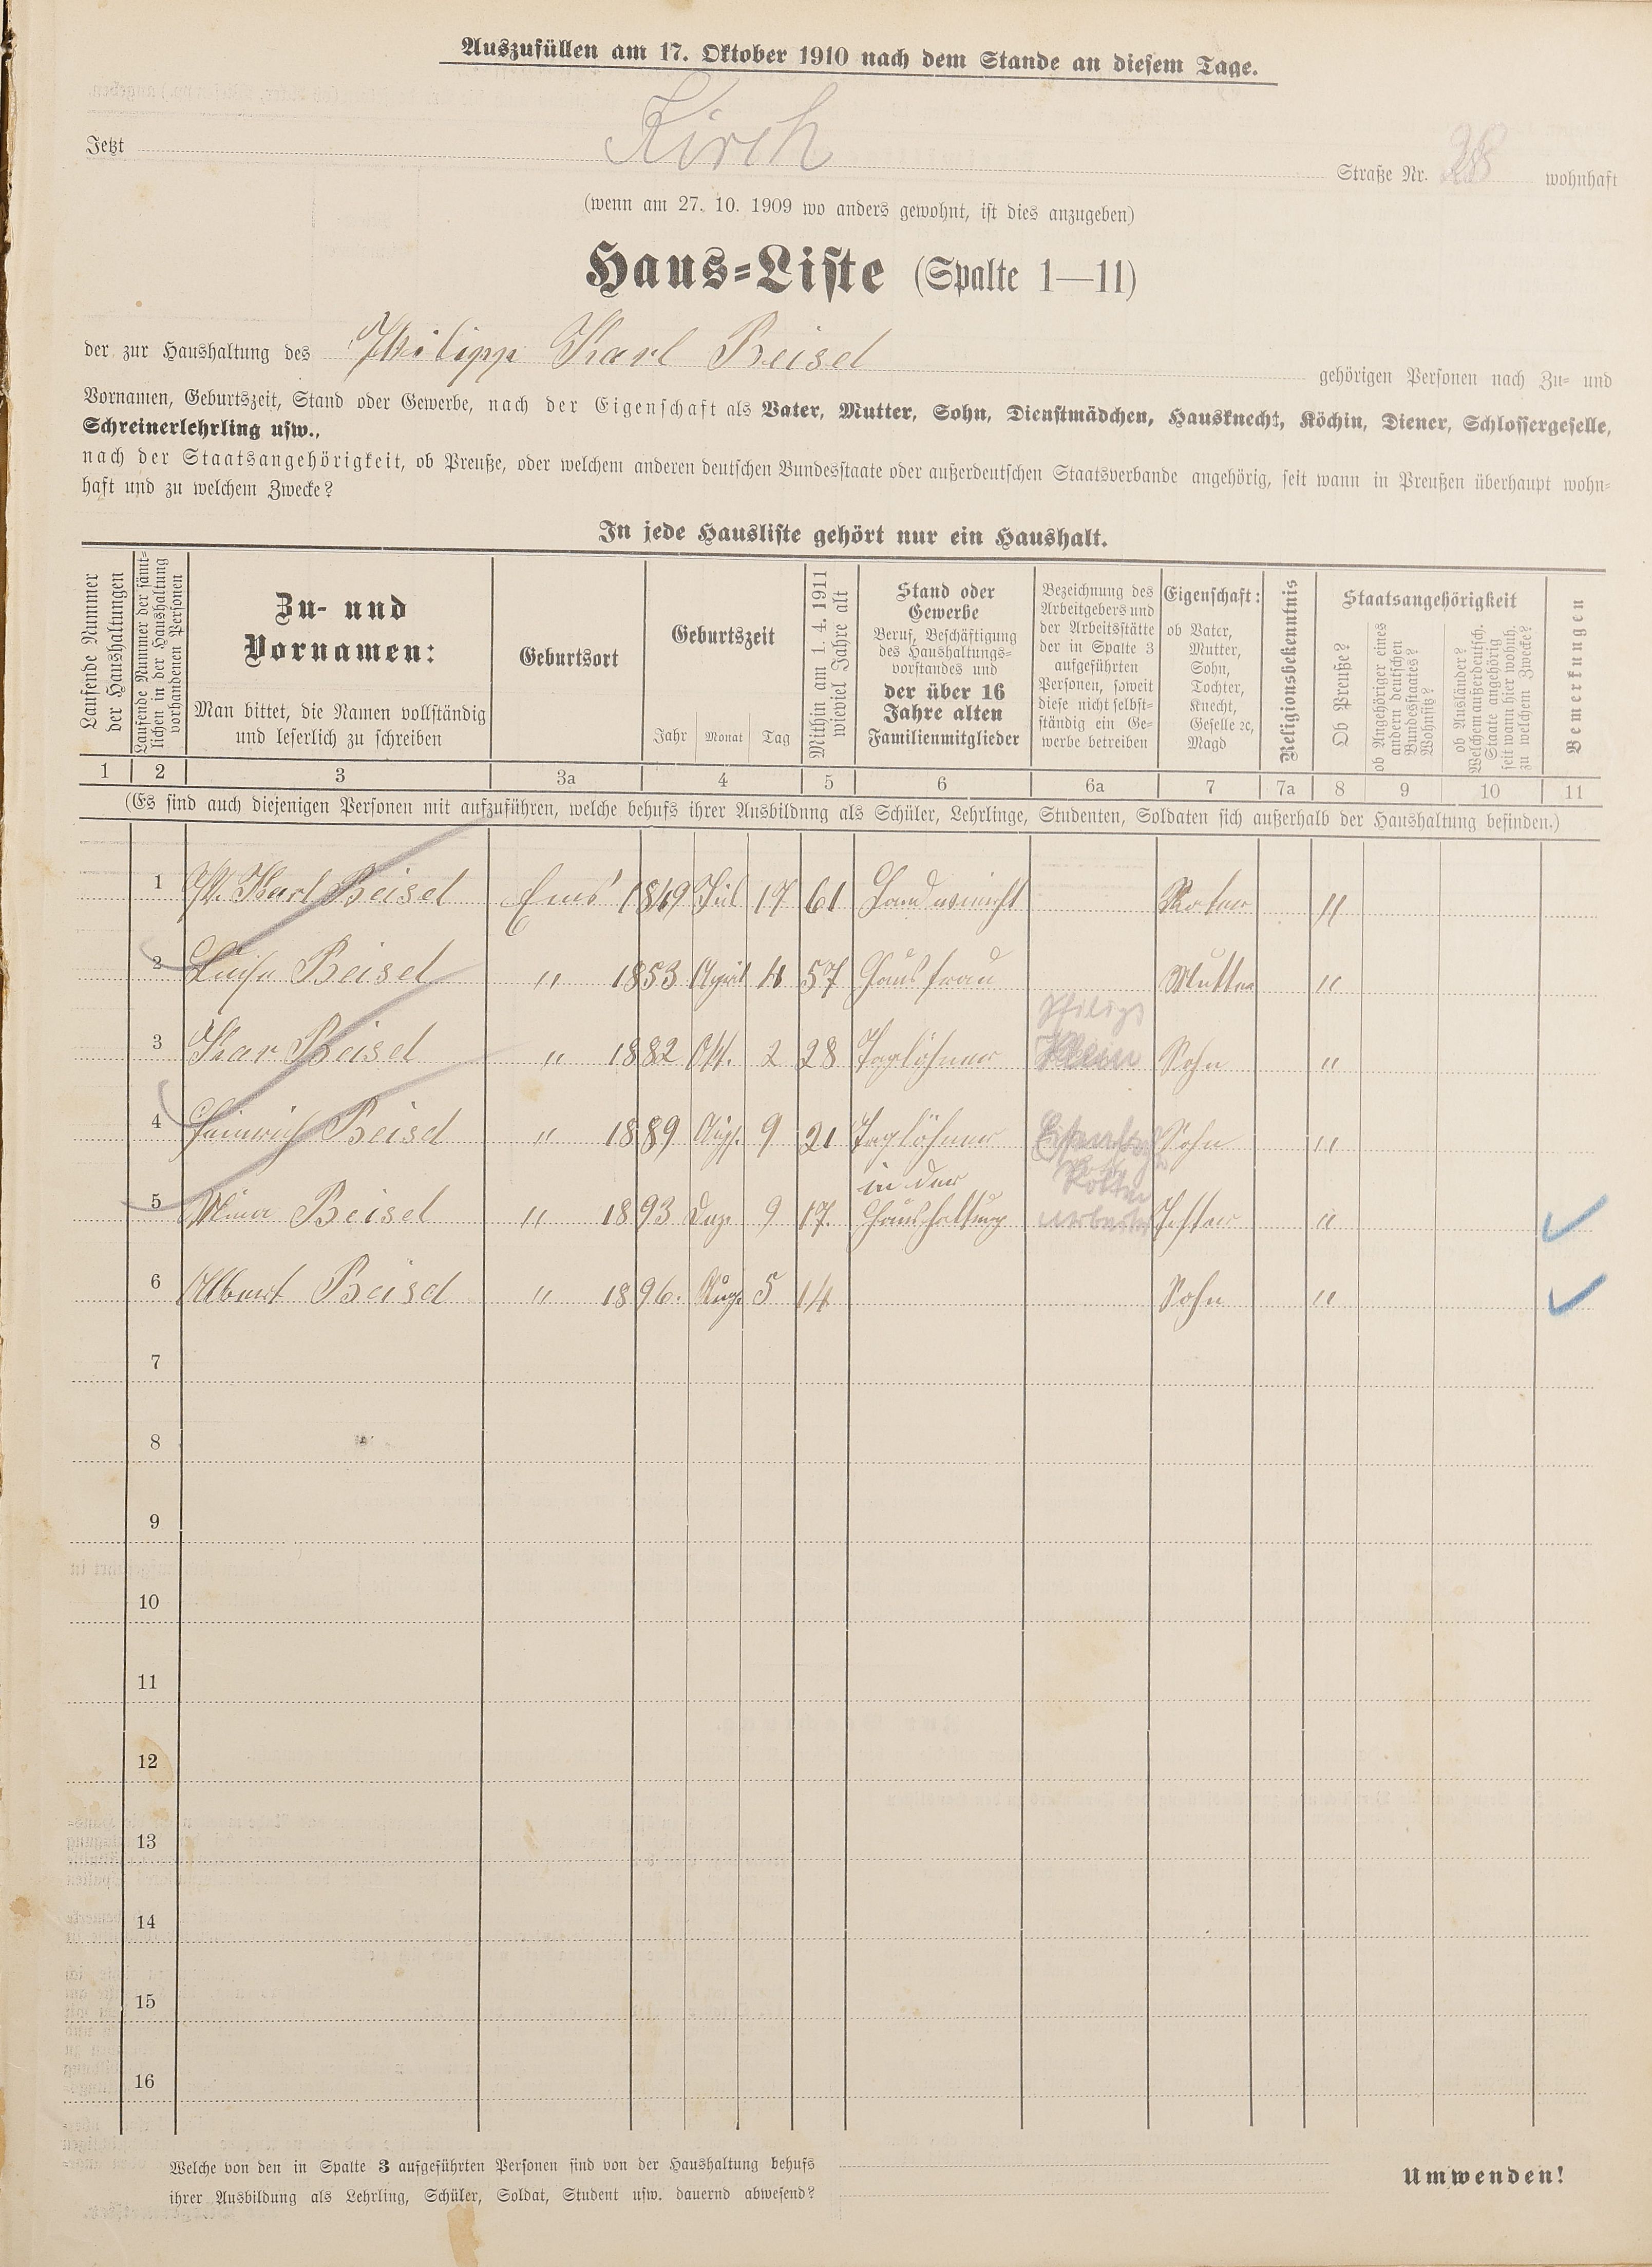 Auszufüllen am 17. Oktober 1910 nach dem Stande an diesem Tage.
Jetzt Kirch Straße Nr. wohnhaft
(wenn am 27. 10. 1909 wo anders gewohnt, ist dies anzugeben)
Haus-Liste (Spalte 1—11)
der zur Haushaltung des Philipp Karl Beisel gehörigen Personen nach Zu- und
Vornamen, Geburtszeit, Stand oder Gewerbe, nach der Eigenschaft als Vater, Mutter, Sohn, Dienstmädchen, Hausknecht, Köchin, Diener, Schlossergeselle,
Schreinerlehrling usw.,
nach der Staatsangehörigkeit, ob Preuße, oder welchem anderen deutschen Bundesstaate oder außerdeutschen Staatsverbande angehörig, seit wann in Preußen überhaupt wohn-
haft und zu welchem Zwecke?
In jede Hausliste gehört nur ein Haushalt.
Laufende Nummer
der Haushaltungen
Laufende Nummer der sämt-
lichen in der Haushaltung
vorhandenen Personen
Zu- und
Vornamen:
Man bittet, die Namen vollständig
und leserlich zu schreiben
Geburtsort
Geburtszeit
Jahr Monat Tag
Mithin am 1. 4. 1911
wieviel Jahre alt
Stand oder
Gewerbe
Beruf, Beschäftigung
des Haushaltungs-
vorstandes und
der über 16
Jahre alten
Familienmitglieder
Bezeichnung des
Arbeitgebers und
der Arbeitsstätte
der in Spalte 3
aufgeführten
Personen, soweit
diese nicht selbst-
ständig ein Ge-
werbe betreiben
Eigenschaft:
ob Vater,
Mutter,
Sohn,
Tochter,
Knecht,
Geselle ꝛc,
Magd
Religionsbekenntnis
Staatsangehörigkeit
Ob Preuße?
ob Angehöriger eines
andern deutschen
Bundesstaates?
Wohnsitz?
ob Ausländer?
Welchem außerdeutsch.
Staate angehörig
seit wann hier wohnh.
zu welchem Zwecke?
Bemerkungen
1 2 3 3a 4 5 6 6a 7 7a 8 9 10 11
(Es sind auch diejenigen Personen mit aufzuführen, welche behufs ihrer Ausbildung als Schüler, Lehrlinge, Studenten, Soldaten sich außerhalb der Haushaltung befinden.)
1 Ph. Karl Beisel Ems 1849 Jul 17 61 Landwirth Vater "
2 Luise Beisel " 1853 April 57 Hausfrau Mutter "
Philipp
3 Kar Beisel " 1882 Okt. 2 28 Taglöhner Klein Sohn "
4 Heinrich Beisel " 1889 Aug. 9 21 Taglöhner Sohn "
in der
5 Mina Beisel " 1893 Dez. 9 17. Haushaltung Tochter "
6 Albert Beisel " 1896. Aug. 5 14 Sohn "
7
8
9
10
11
12
13
14
15
16
Welche von den in Spalte 3 aufgeführten Personen sind von der Haushaltung behufs
ihrer Ausbildung als Lehrling, Schüler, Soldat, Student usw. dauernd abwesend?
Umwenden!